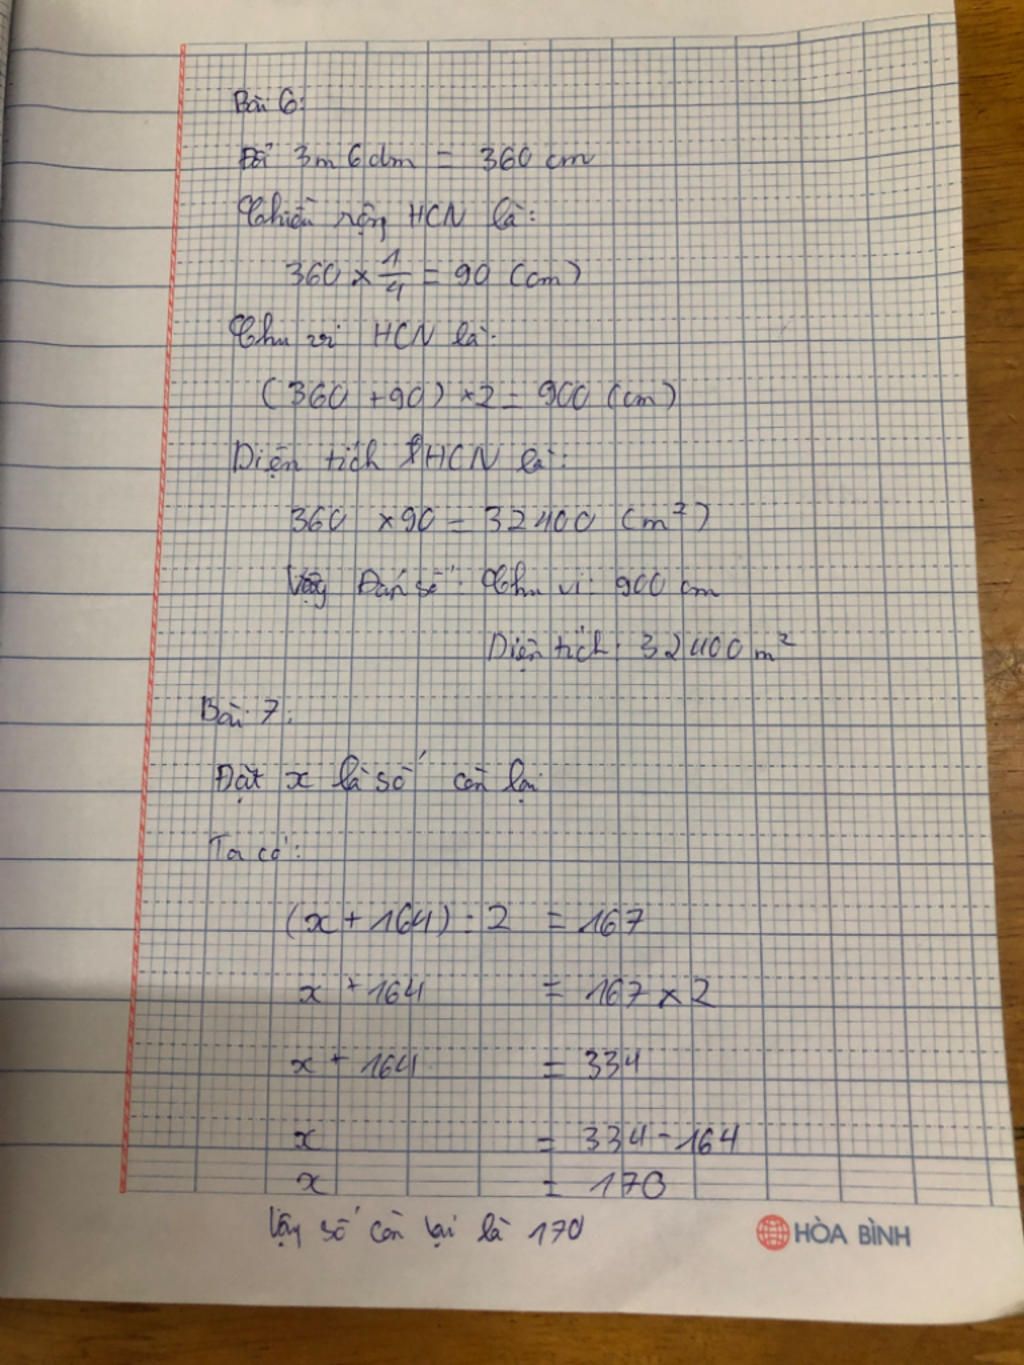 Bài 6:
Đổi 3m 6dm = 360 cm
Chiều rộng HCN là:
360 × 1/4 = 90 (cm)
Chu vi HCN là:
(360 + 90) × 2 = 900 (cm)
Diện tích HCN là:
360 × 90 = 32400 (m²)
Vậy Đáp số: Chu vi: 900 cm
Diện tích: 32400 m²
Bài 7:
Đặt x là số còn lại
Ta có:
(x + 164) : 2 = 167
x + 164 = 167 × 2
x + 164 = 334
x = 334 - 164
x = 170
Vậy số còn lại là 170
HÒA BÌNH